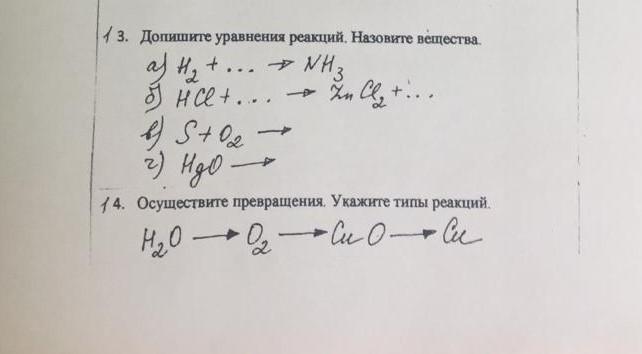 13. Допишите уравнения реакций. Назовите вещества.
а) H₂ + ... → NH₃
б) HCl + ... → ZnCl₂ + ...
в) S + O₂ →
г) HgO →
14. Осуществите превращения. Укажите типы реакций.
H₂O → O₂ → CuO → Cu